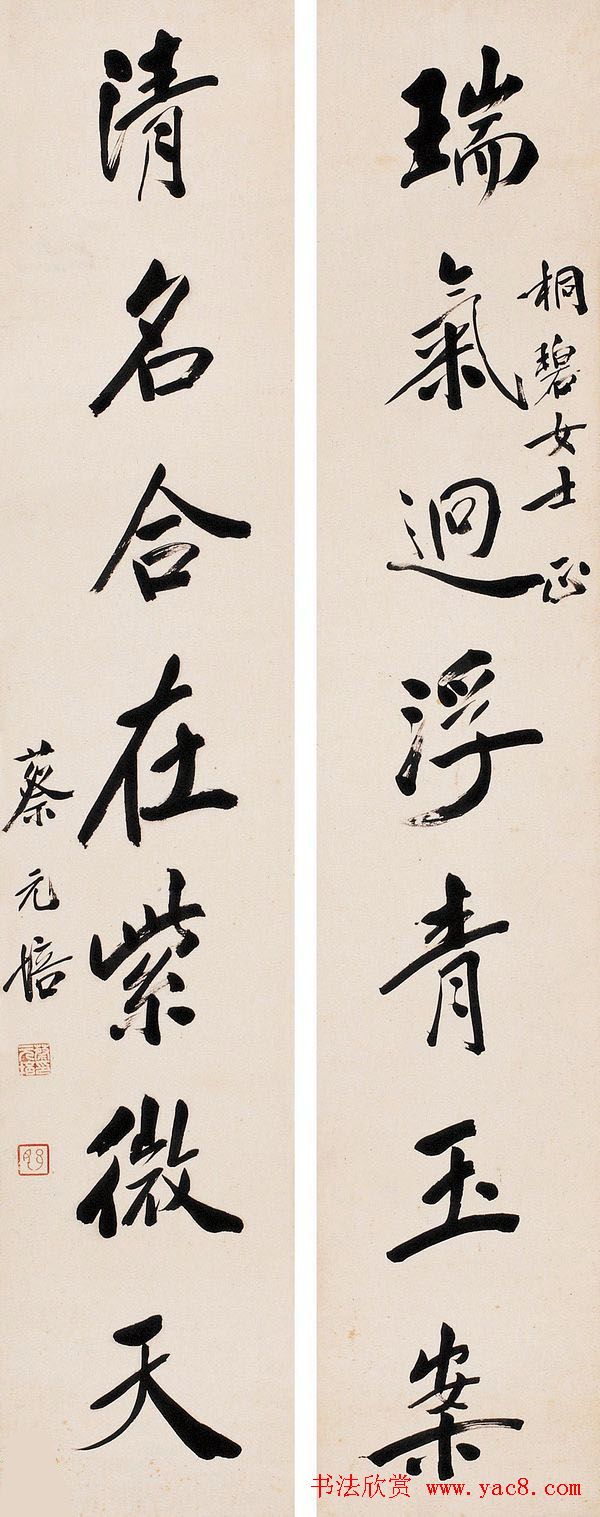 瑞氣迴浮青玉案
桐碧女士正
清名合在紫微天
蔡元培
书法欣赏 www.yac8.com